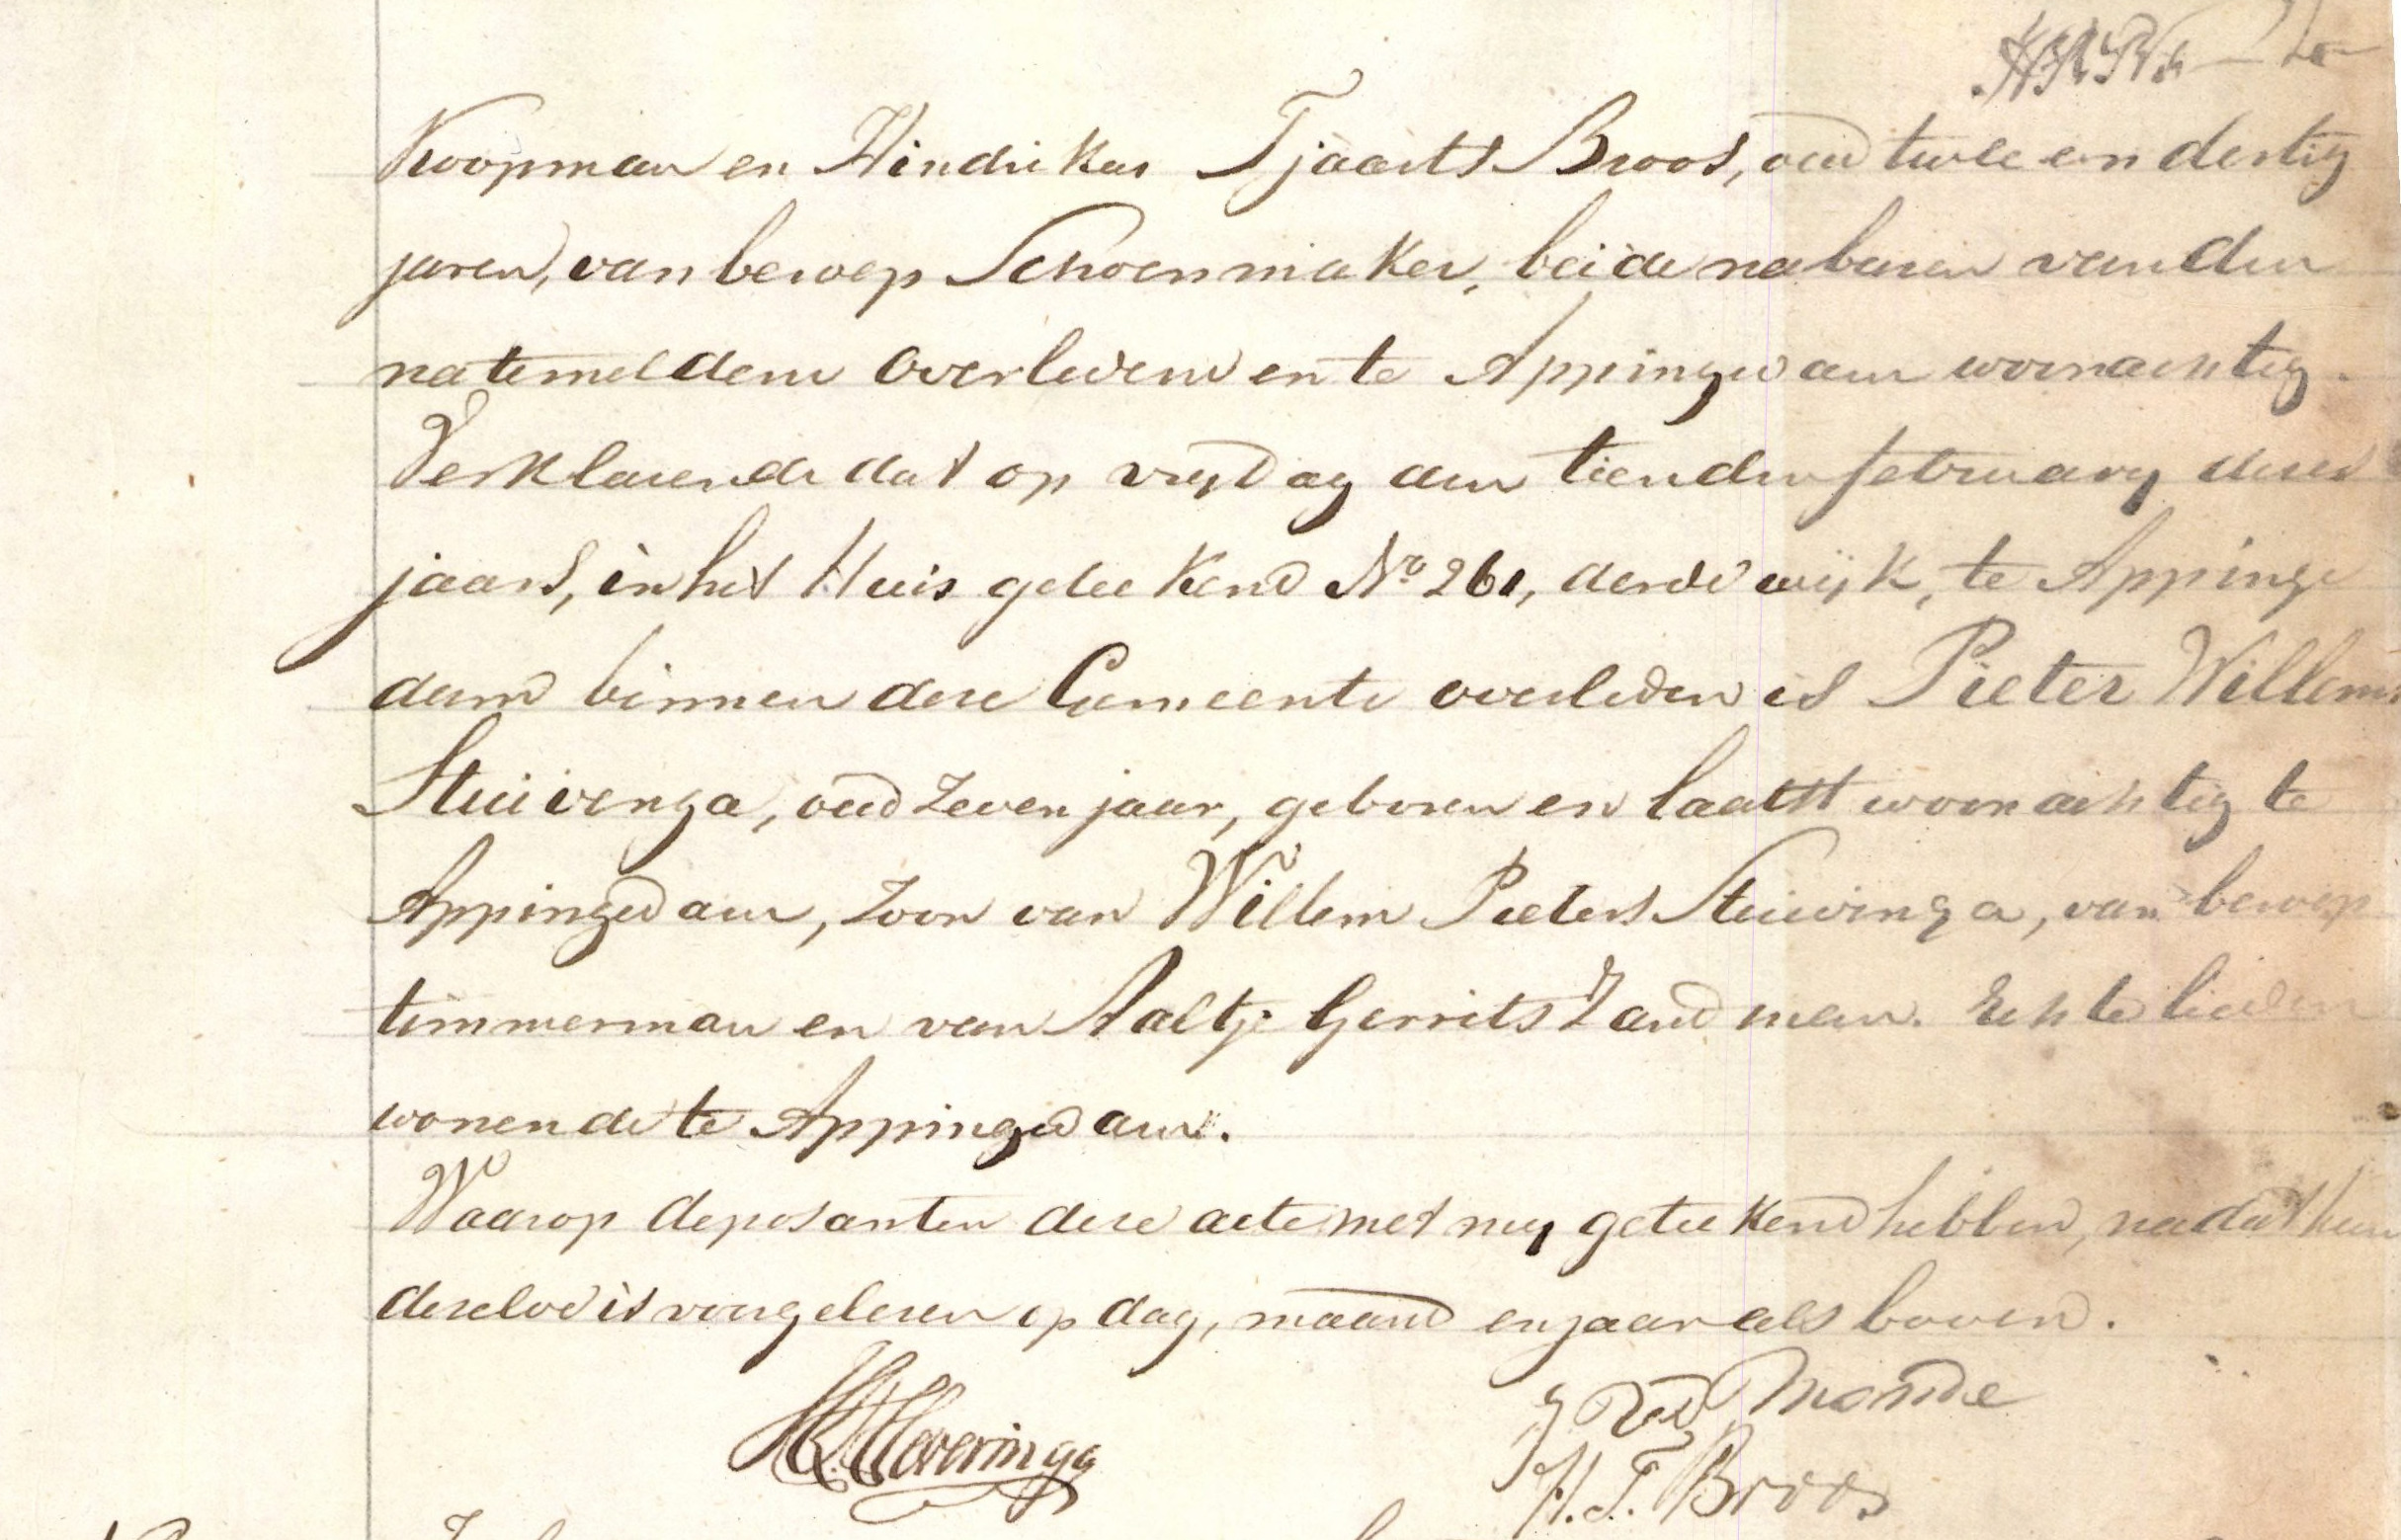 Koopman en Hindrikus Tjaarts Broos, oud twee en dertig
jaren, van beroep Schoenmaker, beide naburen van den
natemeldenen Overledene en te Appingedam woonachtig.
Verklarende dat op vrydag den tienden february dezes
jaars, in het Huis geteekend No 261, derde wijk, te Appinge
dam binnen deze Gemeente overleden is Pieter Willems
Stuivenga, oud Zeven jaar, geboren en laatst woonachtig te
Appingedam, Zoon van Willem Pieters Stuivinga, van beroep
timmerman en van Aaltje Gerrits Zandman. Echtelieden
wonende te Appingedam.
Waarop deposanten deze acte met my geteekend hebben, nadat hun
dezelve is voorgelezen op dag, maand en jaar als boven.
Mande
H. T. Broos